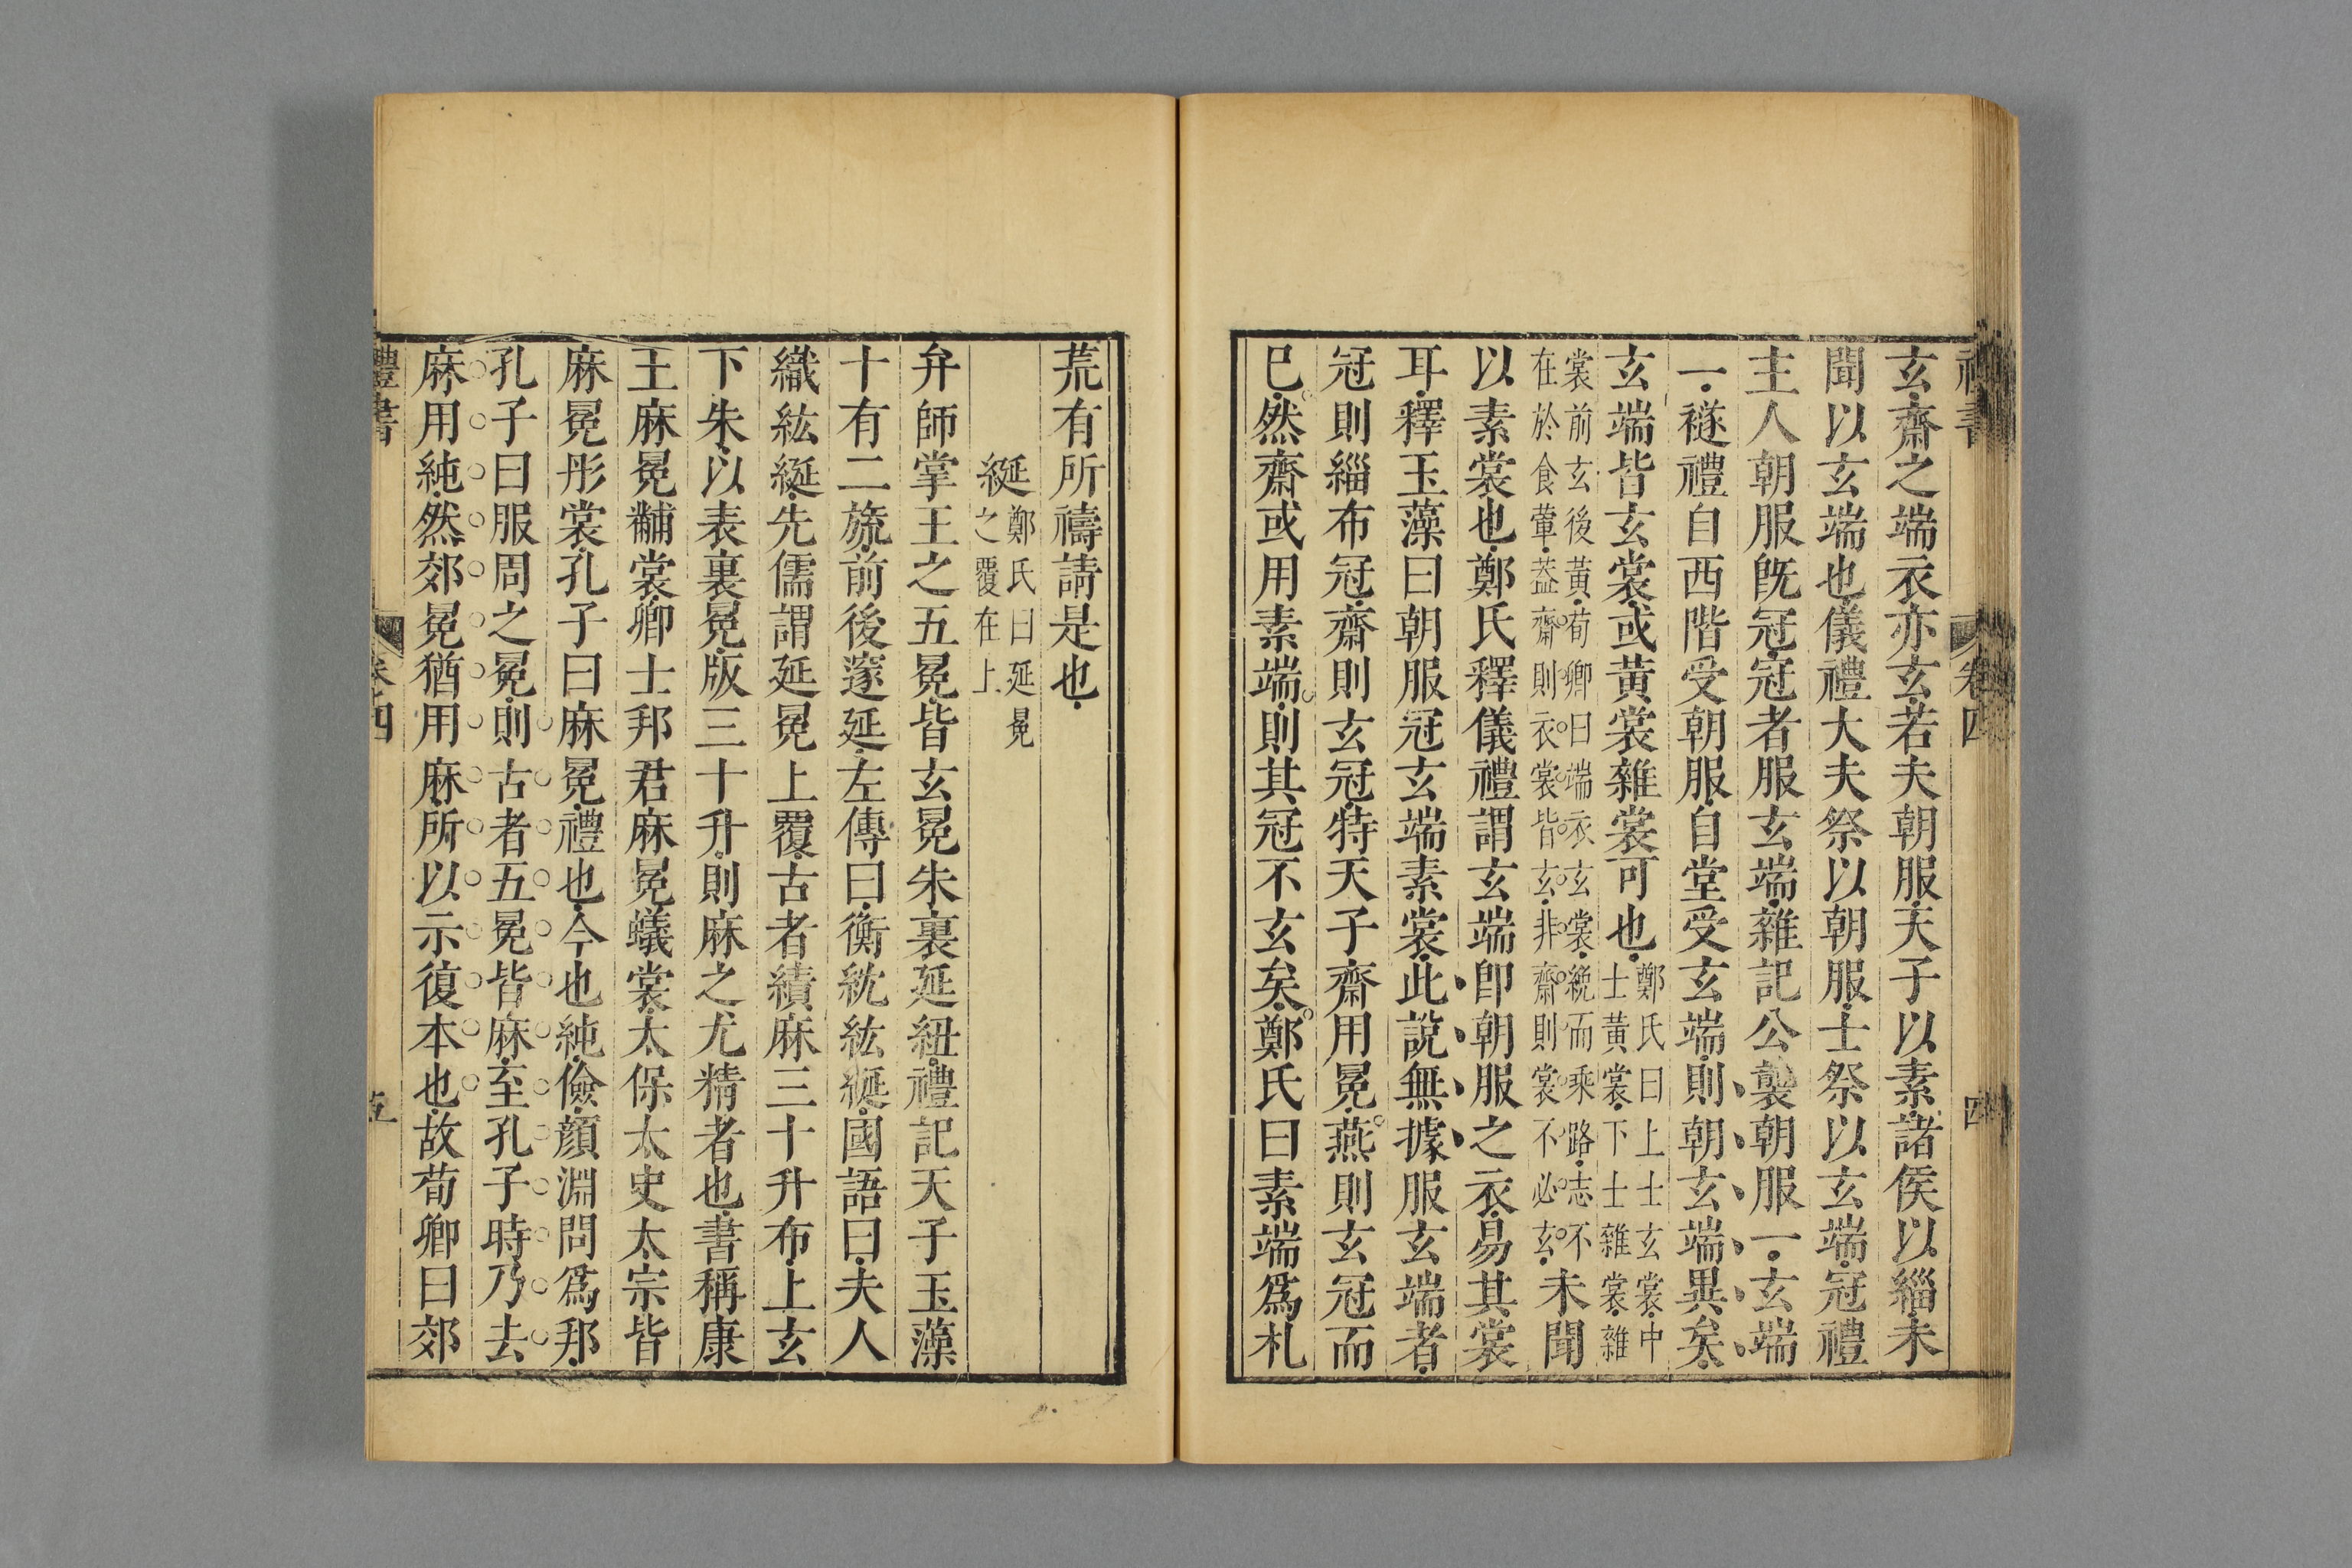 禮書 卷四 四
玄齋之端衣亦玄若夫朝服天子以素諸侯以緇未
聞以玄端也儀禮大夫祭以朝服士祭以玄端冠禮
主人朝服旣冠冠者服玄端雜記公襲朝服一玄端
一襚禮自西階受朝服自堂受玄端則朝玄端異矣
玄端皆玄裳或黃裳雜裳可也鄭氏曰上士玄裳中士黃裳下士雜裳雜
裳前玄後黃荀卿曰端衣玄裳絻而乘路志不在於食葷葢齋則衣裳皆玄非齋則裳不必玄未聞
以素裳也鄭氏釋儀禮謂玄端卽朝服之衣易其裳
耳釋玉藻曰朝服冠玄端素裳此說無據服玄端者
冠則緇布冠齋則玄冠特天子齋用冕燕則玄冠而
巳然齋或用素端則其冠不玄矣鄭氏曰素端爲札
荒有所禱請是也
綖鄭氏曰延冕之覆在上
弁師掌王之五冕皆玄冕朱裏延紐禮記天子玉藻
十有二旒前後邃延左傳曰衡紞紘綖國語曰夫人
織紘綖先儒謂延冕上覆古者績麻三十升布上玄
下朱以表裏冕版三十升則麻之尤精者也書稱康
王麻冕黼裳卿士邦君麻冕蟻裳太保太史太宗皆
麻冕彤裳孔子曰麻冕禮也今也純儉顔淵問爲邦
孔子曰服周之冕則古者五冕皆麻至孔子時乃去
麻用純然郊冕猶用麻所以示復本也故荀卿曰郊
禮書 卷四 五